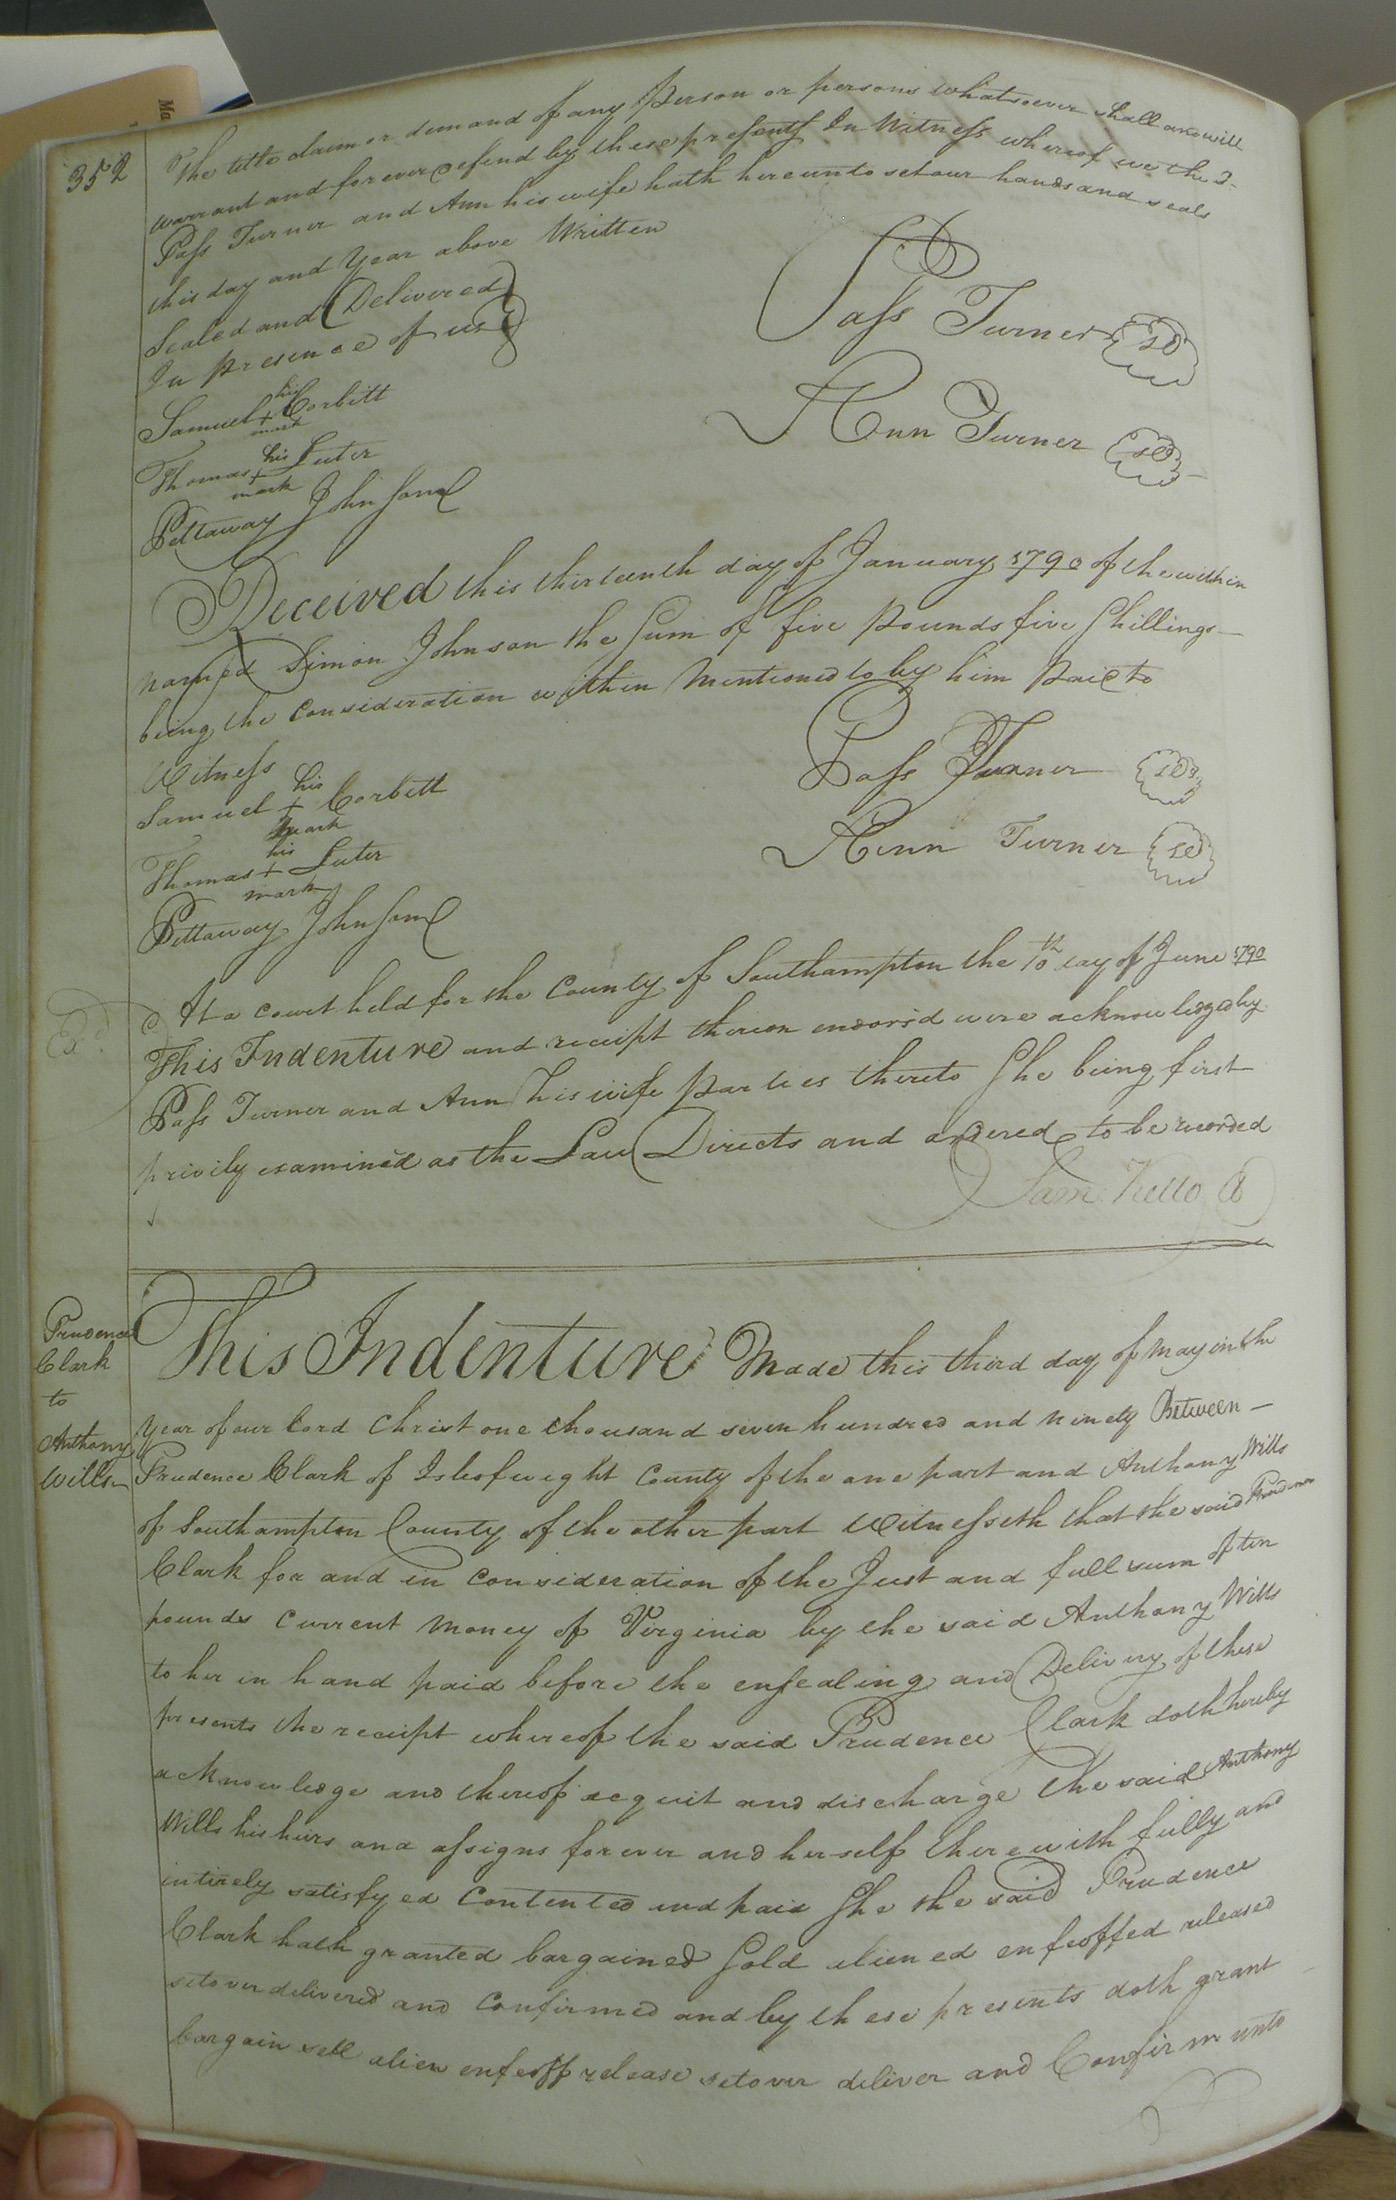 Ma
352
The title claim or demand of any Person or persons whatsoever shall and will
warrant and forever defend by these presents In Witness whereof we the s.
Pass Turner and Ann his wife hath hereunto set our hands and seals
this day and Year above Written
Sealed and Delivered
In presence of us
Pass Turner
Ann Turner
Samuel his + mark Corbitt
Thomas his + mark Luter
Pettaway Johnson
Received this thirteenth day of January 1790 of the within
named Simon Johnson the Sum of five Pounds five Shillings
being the Consideration within Mentioned to by him Paid to
Witness
Pass Turner
Samuel his + mark Corbett
Ann Turner
Thomas his + mark Luter
Pettaway Johnson
At a court held for the County of Southampton the 10th day of June 1790
This Indenture and receipt thereon endors'd were acknowledged by
Pass Turner and Ann his wife Parties thereto She being first
privily examined as the Law Directs and ordered to be recorded
Sam: Kello
Prudence
Clark
to
Anthony
Wills
This Indenture Made this third day of May in the
Year of our Lord Christ one thousand seven hundred and ninety Between
Prudence Clark of Isle of wight County of the one part and Anthony Wills
of Southampton County of the other part Witnesseth that she said Prudence
Clark for and in Consideration of the Just and full sum of ten
pounds Current Money of Virginia by the said Anthony Wills
to her in hand paid before the ensealing and Delivery of these
presents the receipt whereof the said Prudence Clark doth hereby
acknowledge and thereof acquit and discharge the said Anthony
Wills his heirs and assigns forever and herself therewith fully and
intirely satisfyed Contented and paid She the said Prudence
Clark hath granted bargained Sold aliened enfeoffed released
setover delivered and Confirmed and by these presents doth grant
bargain sell alien enfeoff release setover deliver and Confirm unto